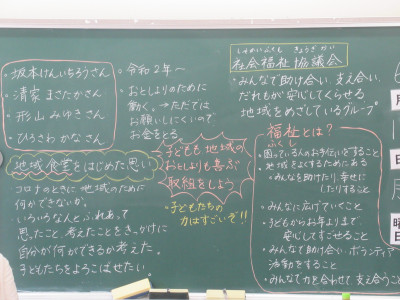 ・坂本けんいちろうさん
・清家 まさたかさん
・形山 みゆきさん
・ひろさわ かなさん
・令和2年〜
・おとしよりのために
働く。→ただでは
お願いしにくいので
お金をとる。
しゃかいふくし きょうぎかい
社会福祉協議会
・みんなで助け合い 支え合い、
だれもが安心してくらせる
地域をめざしているグループ
地域食堂をはじめた思い
コロナのときに 地域のために
何かできないか。
・いろいろな人と ふれあって
思ったこと、考えたことをきっかけに
自分が何ができるか考えた。
・子どもたちをよろこばせたい。
子どもも地域の
おとしよりも喜ぶ
取組をしよう
・子どもたちの
力はすごいぞ!!
福祉とは?
ふくし
・困っている人のお手伝いをすること
・地域をよくするためにある
・みんなを助けたり、幸せに
したりすること
・みんなに広げていくこと
・子どもからお年よりまで
安心してすごせること
・みんなで助け合い、ボランティア
活動をすること
・みんなで力を合わせて支え合うこと
月
日
曜
日